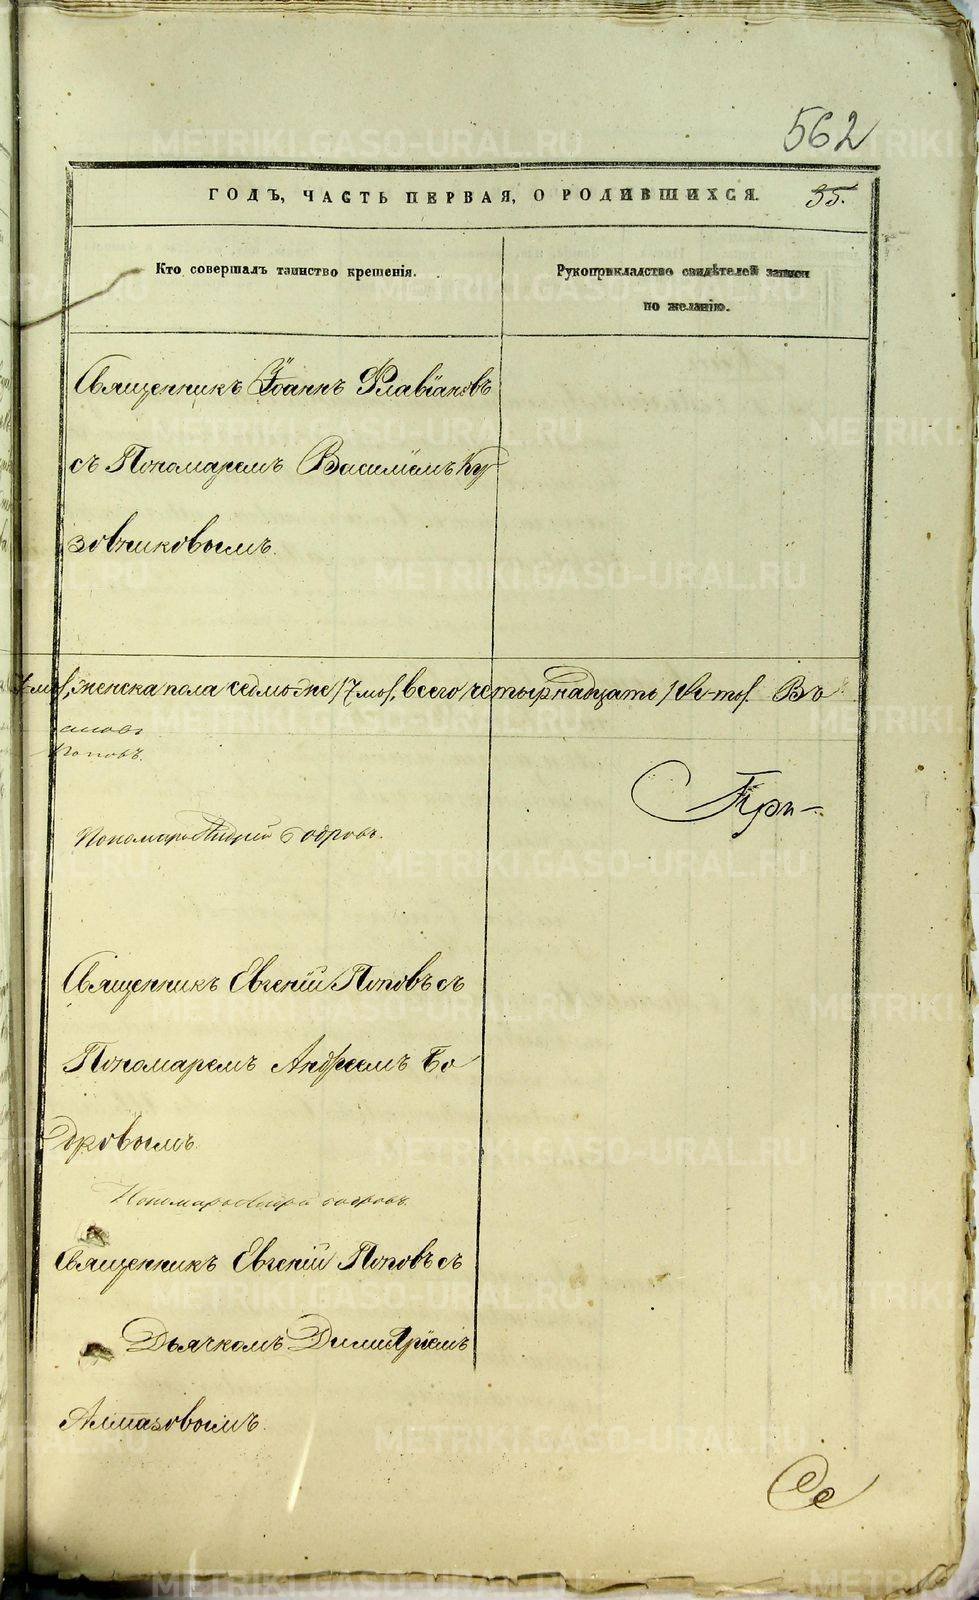 562
ГОДЪ, ЧАСТЬ ПЕРВАЯ, О РОДИВШИХСЯ. 35.
Кто совершалъ таинство крещенія.
Рукоприкладство свидѣтелей записи
по желанію.
Священникъ Іоаннъ Флавіановъ
съ Пономаремъ Василіемъ Ку-
зовниковымъ.
женска пола седмь же /7 мь/, всего четырнадцать /14-ть/. Въ
Поповъ.
При-
Пономарь Андрей Бодровъ.
Священникъ Евгеній Поповъ съ
Пономаремъ Андреемъ Бо
дровымъ.
Пономарь Андрей Бодровъ.
Священникъ Евгеній Поповъ съ
Дьячкомъ Димитріемъ
Алмазовымъ.
METRIKI.GASO-URAL.RU